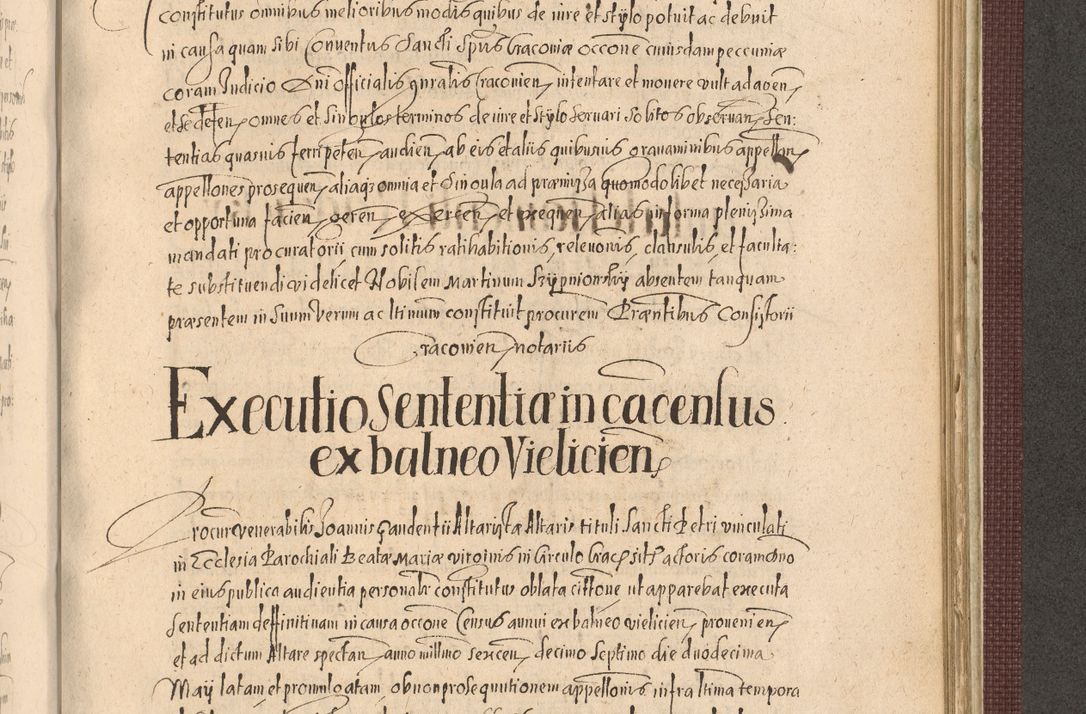 constitutus omnibus melioribus modis quibus de iure et stylo potuit ac debuit
in causa quam sibi Conventus Sancti Spūs Cracoviæ occōne cuiusdam peccuniæ
coram Iudicio Dni Officialis gnralis Cracovien intentare et movere vult ad agen
et se deffen omnes et singulos terminos de iure et stylo servari solitos observan Sen:
tentias quasvis ferri peten audien ab eis et aliis quibusvis gravaminibus appellan
appellones prosequen aliaqs omnia et singula ad præmissa quomodolibet necessaria
et opportuna facien geren exercen et exequen alias in forma plenissima
mandati procuratorii cum solitis ratihabitionis, relevonis, clausulis, et faculta:
te substituendi videlicet Nobilem Martinum Szyppniowsky absentem tanquam
præsentem in suum verum ac ltimum constituit procurem Præntibus Consistorii
Cracovien notariis
Executio Sententiæ in cā census
ex balneo Vielicien
Procur venerabilis Ioannis Gaudentii Altaristæ Altaris tituli Sancti Petri vinculati
in Ecclesia Parochiali Beatæ Mariæ virginis in Circulo Crac sitj actoris coram dno
in eius publica audientia personalr constitutus oblata cittone ut apparebat executa
Sententiam deffinitivam in causa occone Census annui ex balneo vielicien provenien
et ad dictum Altare spectan anno millmo sexcen decimo septimo die duodecima
Maij latam et promulgatam, ob non prosequutionem appellonis infra ltima tempora